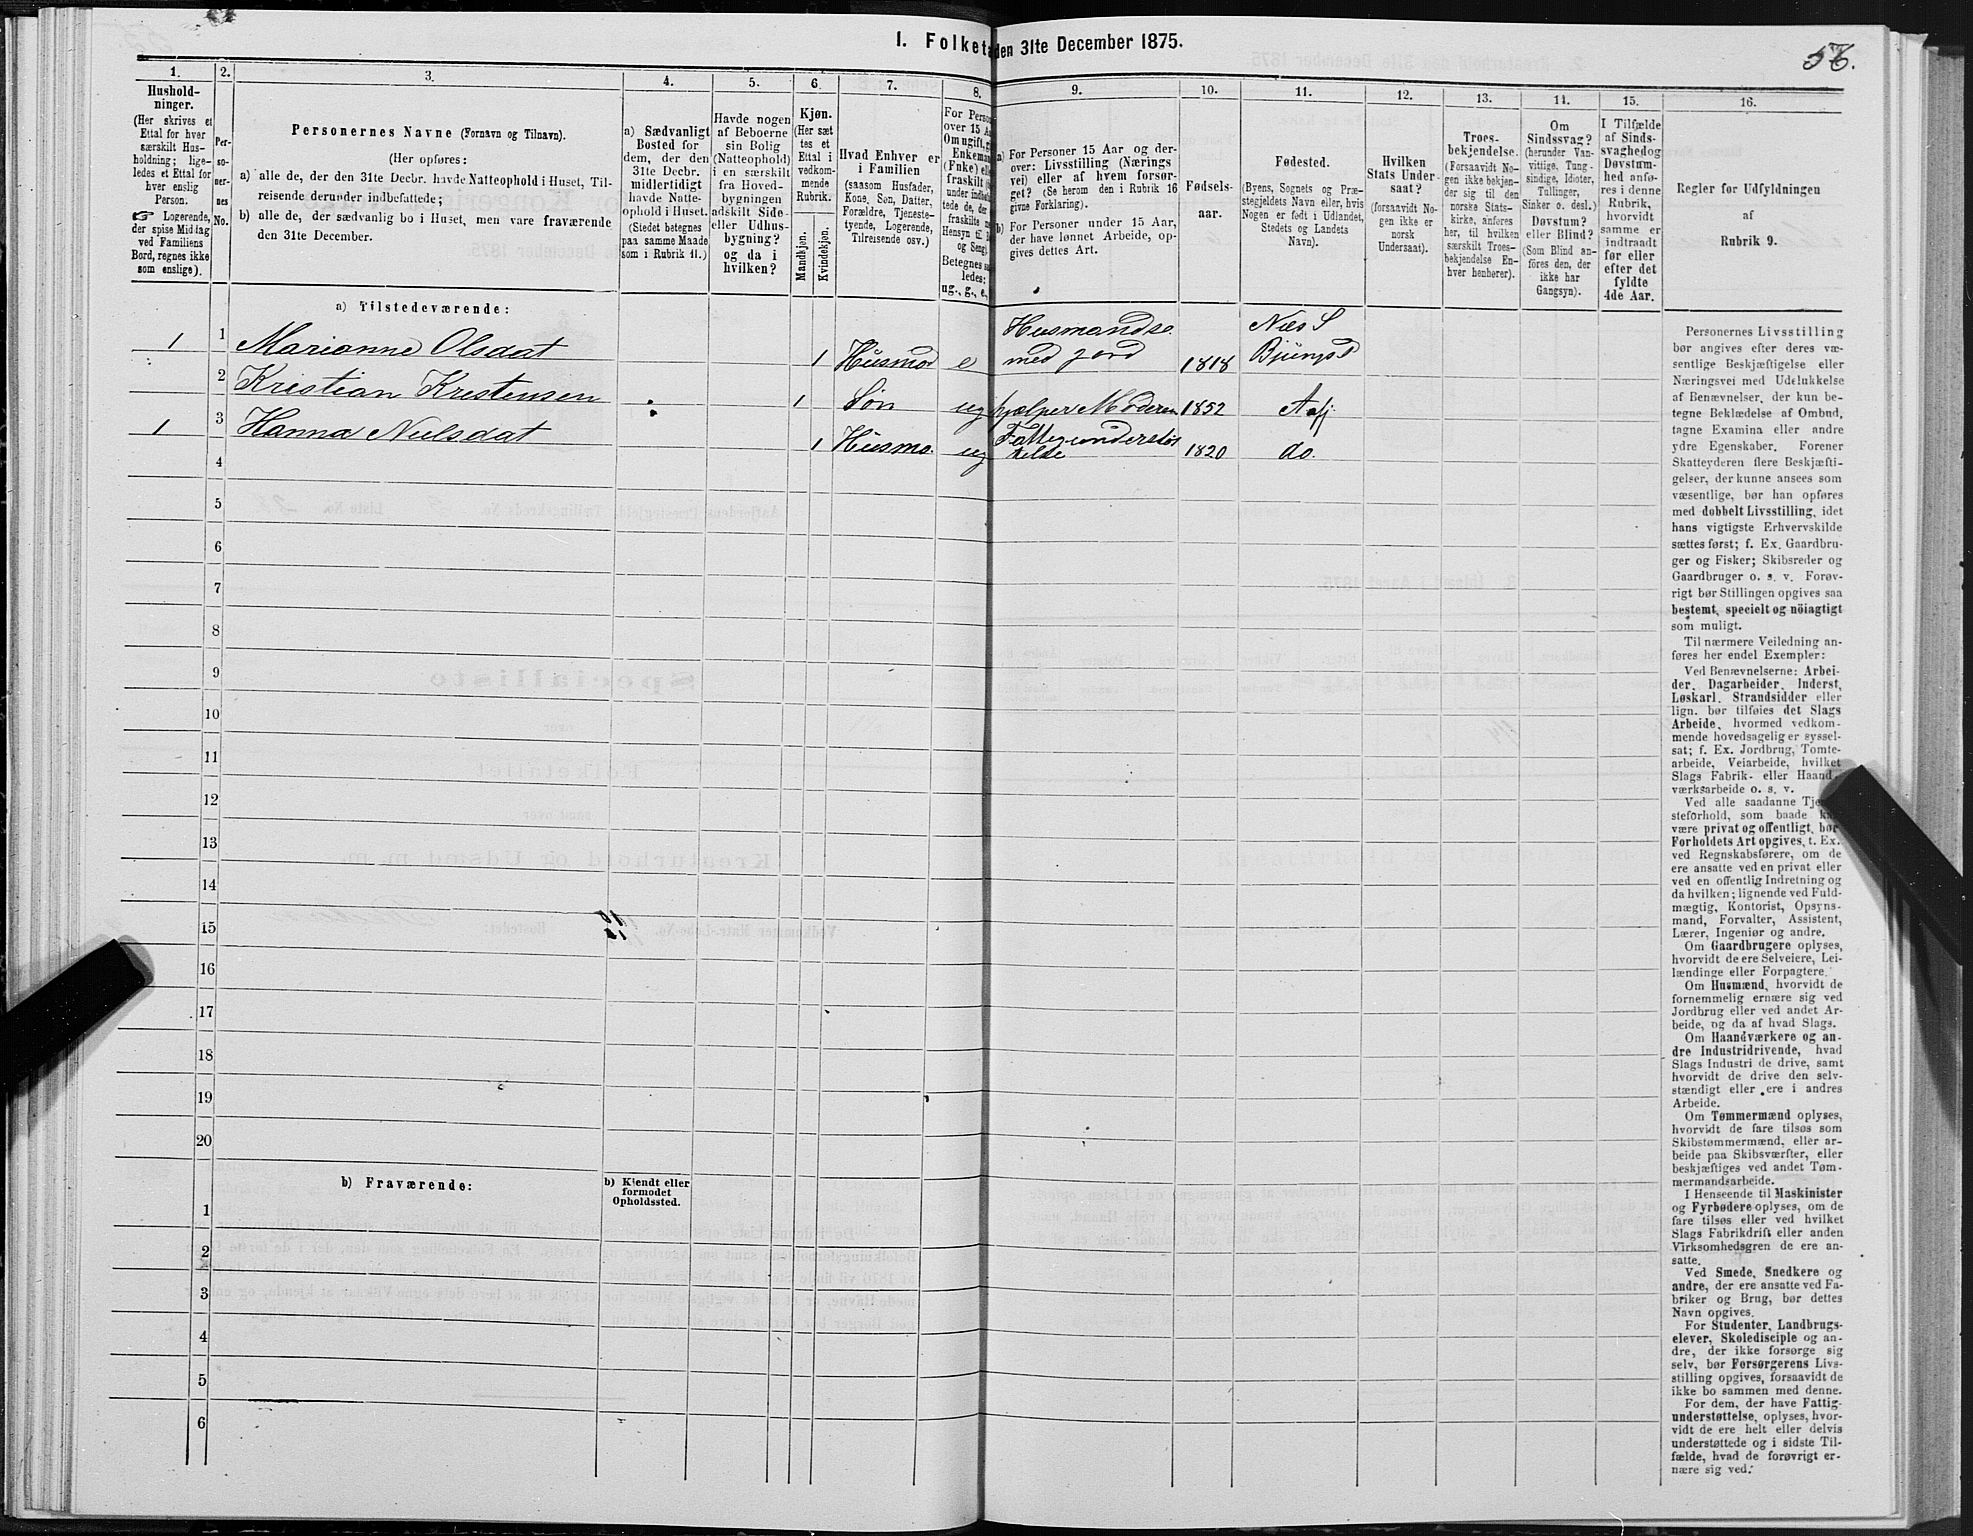 I. Folketa den 31te December 1875.
56.
1.
2.
3.
4.
5.
6.
7.
8.
9.
10.
11.
12.
13.
14.
15.
16.
Hushold-
ninger.
(Her skrives et
Ettal for hver
særskilt Hus-
holdning; lige-
ledes et Ettal for
hver enslig
Person.
☞ Logerende,
der spise Middag
ved Familiens
Bord, regnes ikke
som enslige).
Per-
so-
ner-
nes
No.
Personernes Navne (Fornavn og Tilnavn).
(Her opføres:
a) alle de, der den 31te Decbr. havde Natteophold i Huset, Til-
reisende derunder indbefattede;
b) alle de, der sædvanlig bo i Huset, men vare fraværende
den 31te December.
a) Sædvanligt
Bosted for
dem, der den
31te Decbr.
midlertidigt
havde Natte-
ophold i Huset.
(Stedet betegnes
paa samme Maade
som i Rubrik 11.)
Havde nogen
af Beboerne
sin Bolig
(Natteophold)
i en særskilt
fra Hoved-
bygningen
adskilt Side-
eller Udhus-
bygning?
og da i
hvilken?
Kjøn.
(Her sæt
tes et
Ettal i
vedkom-
mende
Rubrik.
Mandkjøn.
Kvindekjøn.
Hvad Enhver er
i Familien
(saasom Husfader,
Kone, Søn, Datter,
Forældre, Tjeneste-
tyende, Logerende,
Tilreisende osv.)
For Perso
over 15 A
Om ugift, g
Enkeman
(Fnke) elle
fraskilt (
under indbe
tede de, de
fraskilte m
Hensyn til
og Seng)
Betegnes s
ledes:
ug., g., e.,
a) For Personer 15 Aar og der-
over: Livsstilling (Nærings
vei) eller af hvem forsør-
get? (Se herom den i Rubrik 16
givne Forklaring).
b) For Personer under 15 Aar,
der have lønnet Arbeide, op-
gives dettes Art.
Fødsels-
aar.
Fødested.
(Byens, Sognets og Præ-
stegjeldets Navn eller, hvis
Nogen er født i Udlandet,
Stedets og Landets
Navn).
Hvilken
Stats Under-
saat?
(forsaavidt No-
gen ikke er
norsk
Undersaat).
Troes-
bekjendelse.
(Forsaavidt No-
gen ikke bekjen-
der sig til den
norske Stats-
kirke, anføres
her, til hvilken
særskilt Troes-
bekjendelse En-
hver henhører).
Om
Sindssvag?
(herunder Van-
vittige, Tung-
sindige, Idoter,
Tullinger,
Sinker o. desl.)
Døvstum?
eller Blind?
(Som Blind an-
föres den, der
ikke har
Gangsyn).
I Tilfælde
af Sinds-
svaghed og
Døvstum-
hed anfø-
res i denne
Rubrik,
hvorvidt
samme er
indtraadt
før eller
efter det
fyldte
4de Aar.
Regler før Udfyldningen
af
Rubrik 9.
a) Tilstedeværende:
1 1 Marianne Olsdat 1 Husmod e Husmandse. med jord 1818 Næs S Bjungs P
2 Kristian Kristensen 1 Søn ug hjælper Moderen 1852 Aafj
1 3 Hanna Nielsdat 1 Husmo. ug Fattigunderstøt telse 1820 do.
4
5
6
7
8
9
10
11
12
13
14
15
16
17
18
19
20
b) Fraværende:
b) Kjendt eller
formodet
Opholdssted.
1
2
3
4
5
6
Personernes Livsstilling
bør angives efter deres væ-
sentlige Beskjæftigelse eller
Næringsvei med Udelukkelse
af Benævnelser, der kun be-
tegne Beklædelse af Ombud,
tagne Examina eller andre
ydre Egenskaber. Forener
Skatteyderen flere Beskjæfti-
gelser, der kunne ansees som
væsentlige, bør han opføres
med dobbelt Livsstilling, idet
hans vigtigste Erhvervskilde
sættes først; f. Ex. Gaardbru-
ger og Fisker; Skibsreder og
Gaardbruger o. s. v. Forøv-
rigt bør Stillingen opgives saa
bestemt, specielt og nöiagtigt
som muligt.
Til nærmere Veiledning an-
føres her endel Exempler:
Ved Benævnelserne: Arbei-
der, Dagarbeider, Inderst,
Løskarl, Strandsidder eller
lign. bør tilføies det Slags
Arbeide, hvormed vedkom-
mende hovedsagelig er syssel-
sat; f. Ex. Jordbrug, Tomte-
arbeide, Veiarbeide, hvilket
Slags Fabrik- eller Haand-
værksarbeide o. s. v.
Ved alle saadanne Tje
steforhold, som baade k
være privat og offentligt, bør
Forholdets Art opgives, t. Ex.
ved Regnskabsførere, om de
ere ansatte ved en privat eller
ved en offentlig Indretning og
da hvilken; lignende ved Fuld-
mægtig, Kontorist, Opsyns-
mand, Forvalter, Assistent,
Lærer, Ingeniør og andre.
Om Gaardbrugere oplyses,
hvorvidt de ere Selveiere, Lei-
lændinge eller Forpagtere.
Om Husmænd, hvorvidt de
fornemmelig ernære sig ved
Jordbrug eller ved andet Ar-
beide, og da af hvad Slags.
Om Haandværkere og an-
dre Industridrivende, hvad
Slags Industri de drive, samt
hvorvidt de drive den selv-
stændigt eller ere i andres
Arbeide.
Om Tømmermænd oplyses,
hvorvidt de fare tilsøs som
Skibstømmermænd, eller ar-
beide paa Skibsværfter, eller
beskjæftiges ved andet Tøm-
mermandsarbeide.
I Henseende til Maskinister
og Fyrbødere oplyses, om de
fare tilsøs eller ved hvilket
Slags Fabrikdrift eller anden
Virksomhedsgren de ere an-
satte.
Ved Smede, Snedkere og
andre, der ere ansatte ved Fa-
briker og Brug, bør dettes
Navn opgives.
For Studenter, Landbrugs-
elever, Skoledisciple og an-
dre, der ikke forsørge sig
selv, bør Forsørgerens Livs-
stilling opgives, forsaavidt de
ikke bo sammen med denne.
For dem, der have Fattig-
understøttelse, oplyses, hvor-
vidt de ere helt eller delvis
understøttede og i sidste Til-
fælde, hvad de forøvrigt er-
nære sig ved.